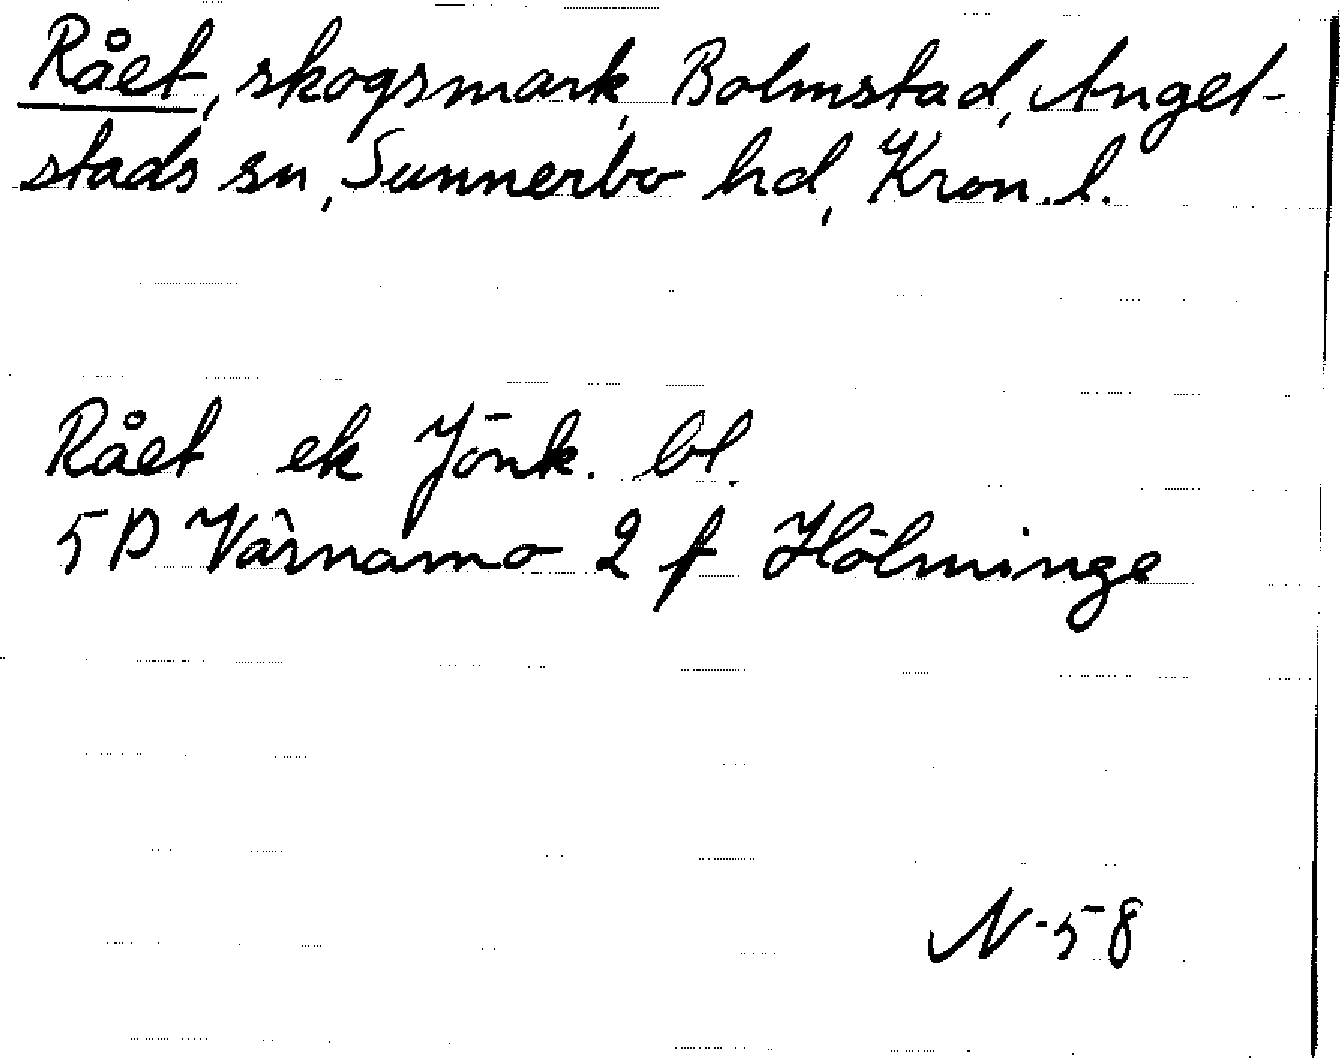 Rået, skogsmark, Bolmstad, Angel-
stads sn, Sunnerbo hd, Kron. l.
Rået ek Jönk. bl.
5D Värnamo 2 f Hölminge
N-58